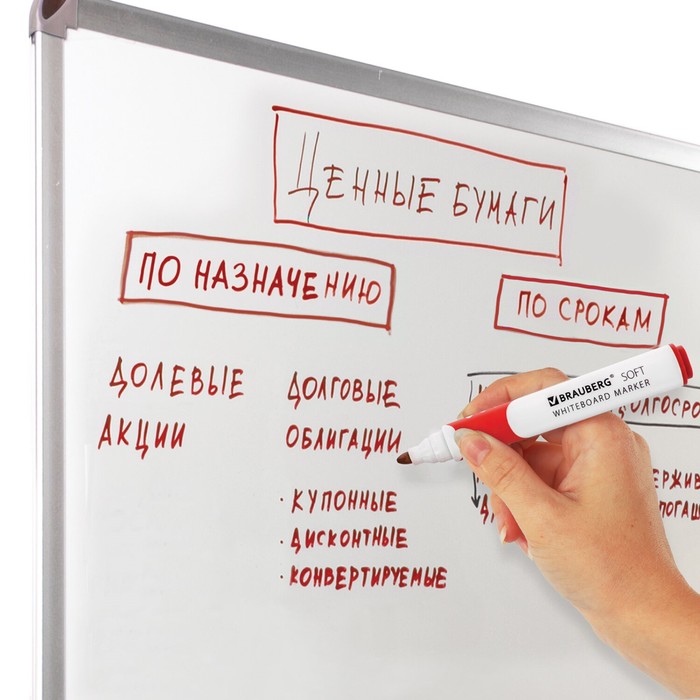 Ценные бумаги
ПО НАЗНАЧЕНИЮ
ПО СРОКАМ
ДОЛЕВЫЕ
АКЦИИ
ДОЛГОВЫЕ
ОБЛИГАЦИИ
· КУПОННЫЕ
· ДИСКОНТНЫЕ
· КОНВЕРТИРУЕМЫЕ
BRAUBERG® SOFT
WHITEBOARD MARKER